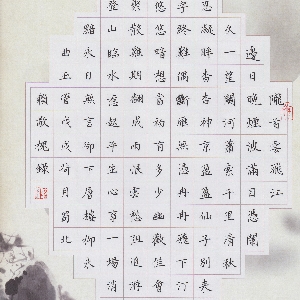 隴首雲飛江
邊日晚煙波滿目憑闌
久一望關河蕭索千里清秋
忍凝眸杳杳神京盈盈仙子別來
字終難偶斷雁無憑冉冉飛下汀
悠悠暗想當初有多少幽歡佳會
聚散難期翻成雨恨雲愁阻追游
登山臨水惹起平生心事一場消
黯永日無言卻下層樓柳永
曲玉管戊戌荷月蜀北
敬槐錄